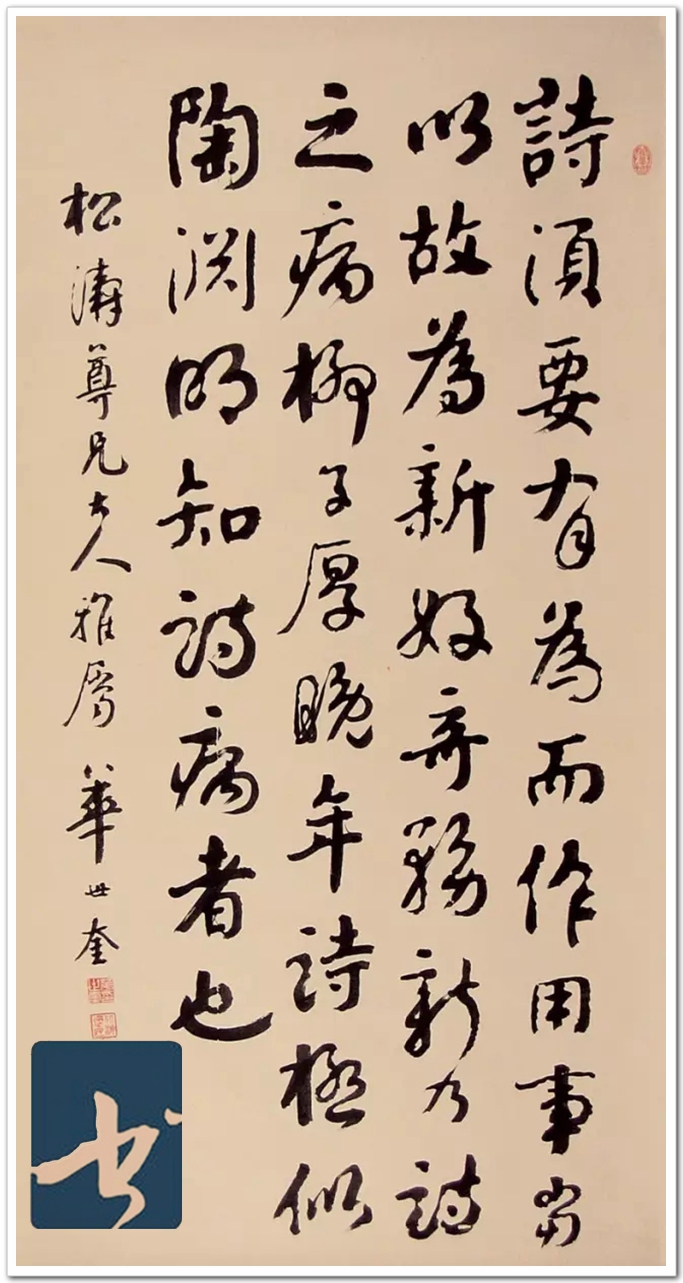 詩須要有為而作用事當
以故為新好奇務新乃詩
之病柳子厚晚年詩極似
陶淵明知詩病者也
松濤尊兄大人雅屬 華世奎
书